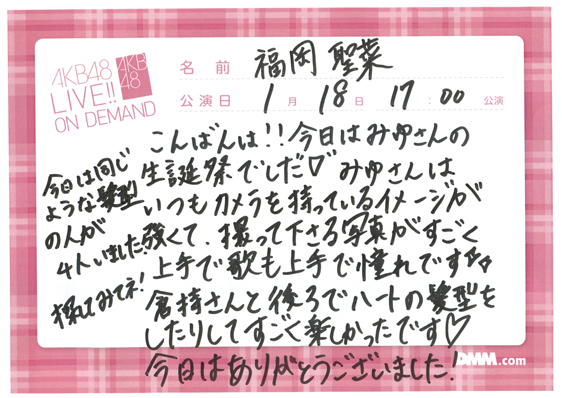 AKB48
LIVE!!
ON DEMAND
AKB
48
名前 福岡 聖菜
公演日 1月 18日 17:00 公演
こんばんは!!今日はみゆさんの
生誕祭でしだ♡みゆさんは
いつもカメラを持っているイメージが
強くて、撮って下さる写真がすごく
上手で歌も上手で憧れです
倉持さんと後ろでハートの髪型を
したりしてすごく楽しかったです♡
今日はありがとうございました!
今日は同じ
ような髪型
の人が
4人いました。
探してみてネ!
DMM.com